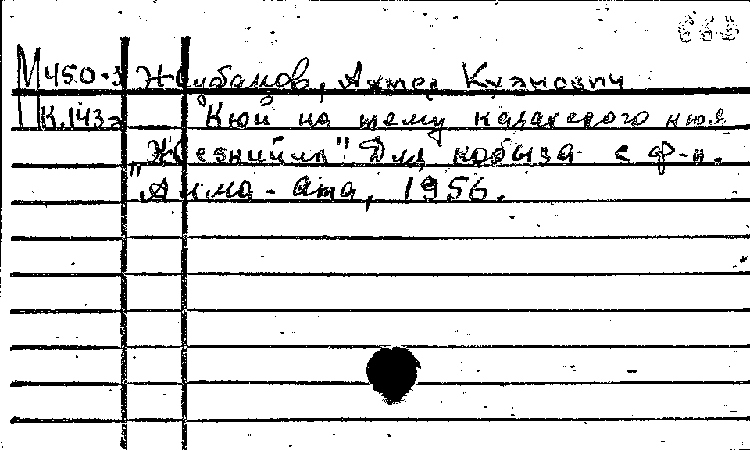 М450-3 Жубанов, Ахмед Куанович
К.143э "Кюй на тему казахского кюя
"Жезкийик" Для кобыза с ф-п.
Алма-Ата, 1956.